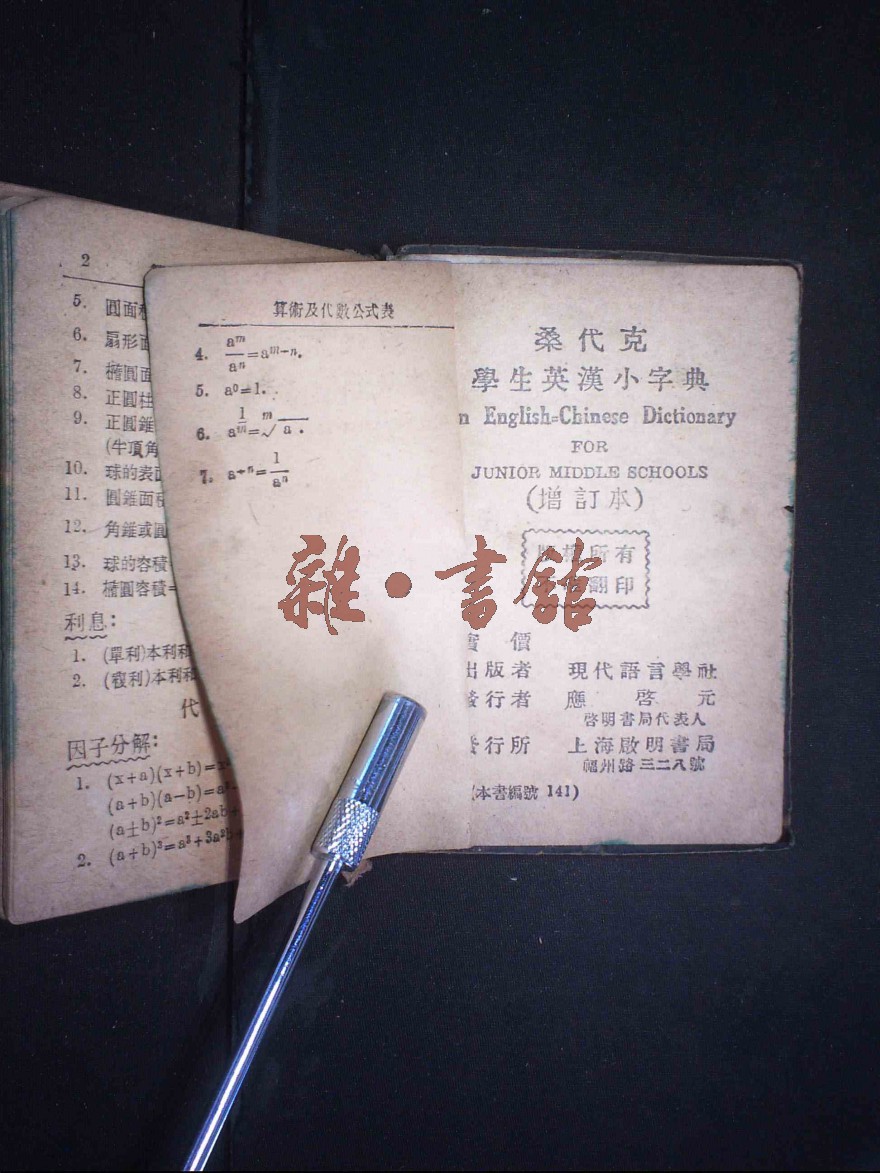 2
5. 圓面積
6. 扇形面
7. 橢圓面
8. 正圓柱
9. 正圓錐
(牛頂角
10. 球的表面
11. 圓錐面積
12. 角錐或圓
13. 球的容積
14. 橢圓容積=
利息:
1. (單利)本利和
2. (複利)本利和
代
因子分解:
1. (x+a)(x+b)=x
(a+b)(a−b)=a²
(a±b)²=a²±2ab
2. (a+b)³=a³+3a²b
算術及代數公式表
4. aᵐ/aⁿ=aᵐ⁻ⁿ.
5. a⁰=1.
6. a^(1/m)=ᵐ√a .
7. a⁺ⁿ=1/aⁿ
桑代克
學生英漢小字典
n English=Chinese Dictionary
FOR
JUNIOR MIDDLE SCHOOLS
(增訂本)
版權所有
翻印
實價
出版者 現代語言學社
發行者 應啓元
啓明書局代表人
發行所 上海啟明書局
福州路三二八號
(本書編號 141)
雜·書館